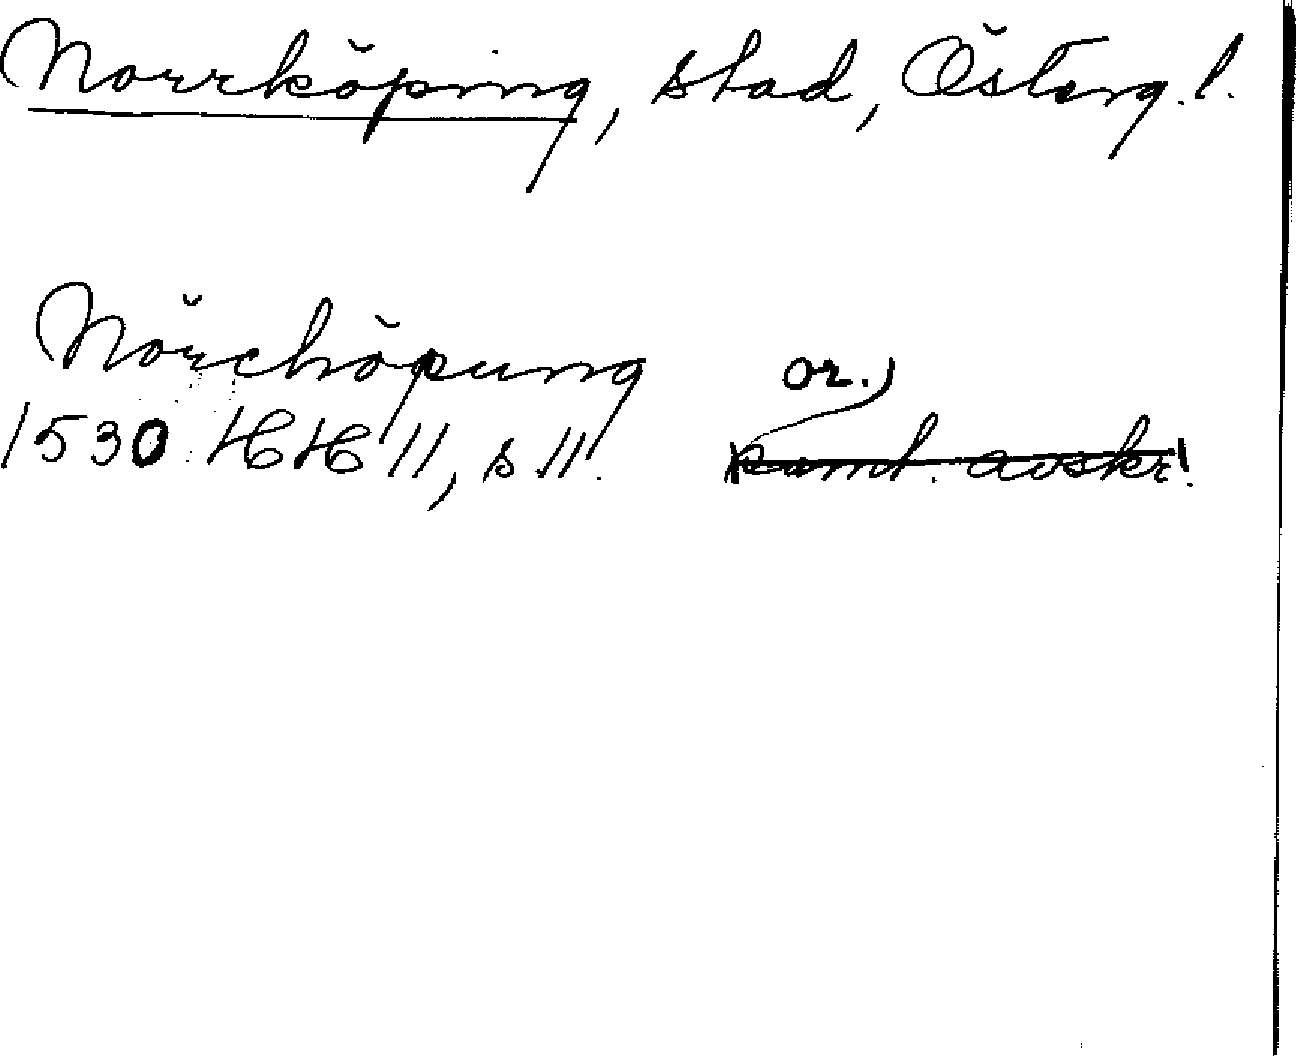 Norrköping, stad, Österg. l.
Nörchöpung or.)
1530 HH 11, s 11. samt. avskr.